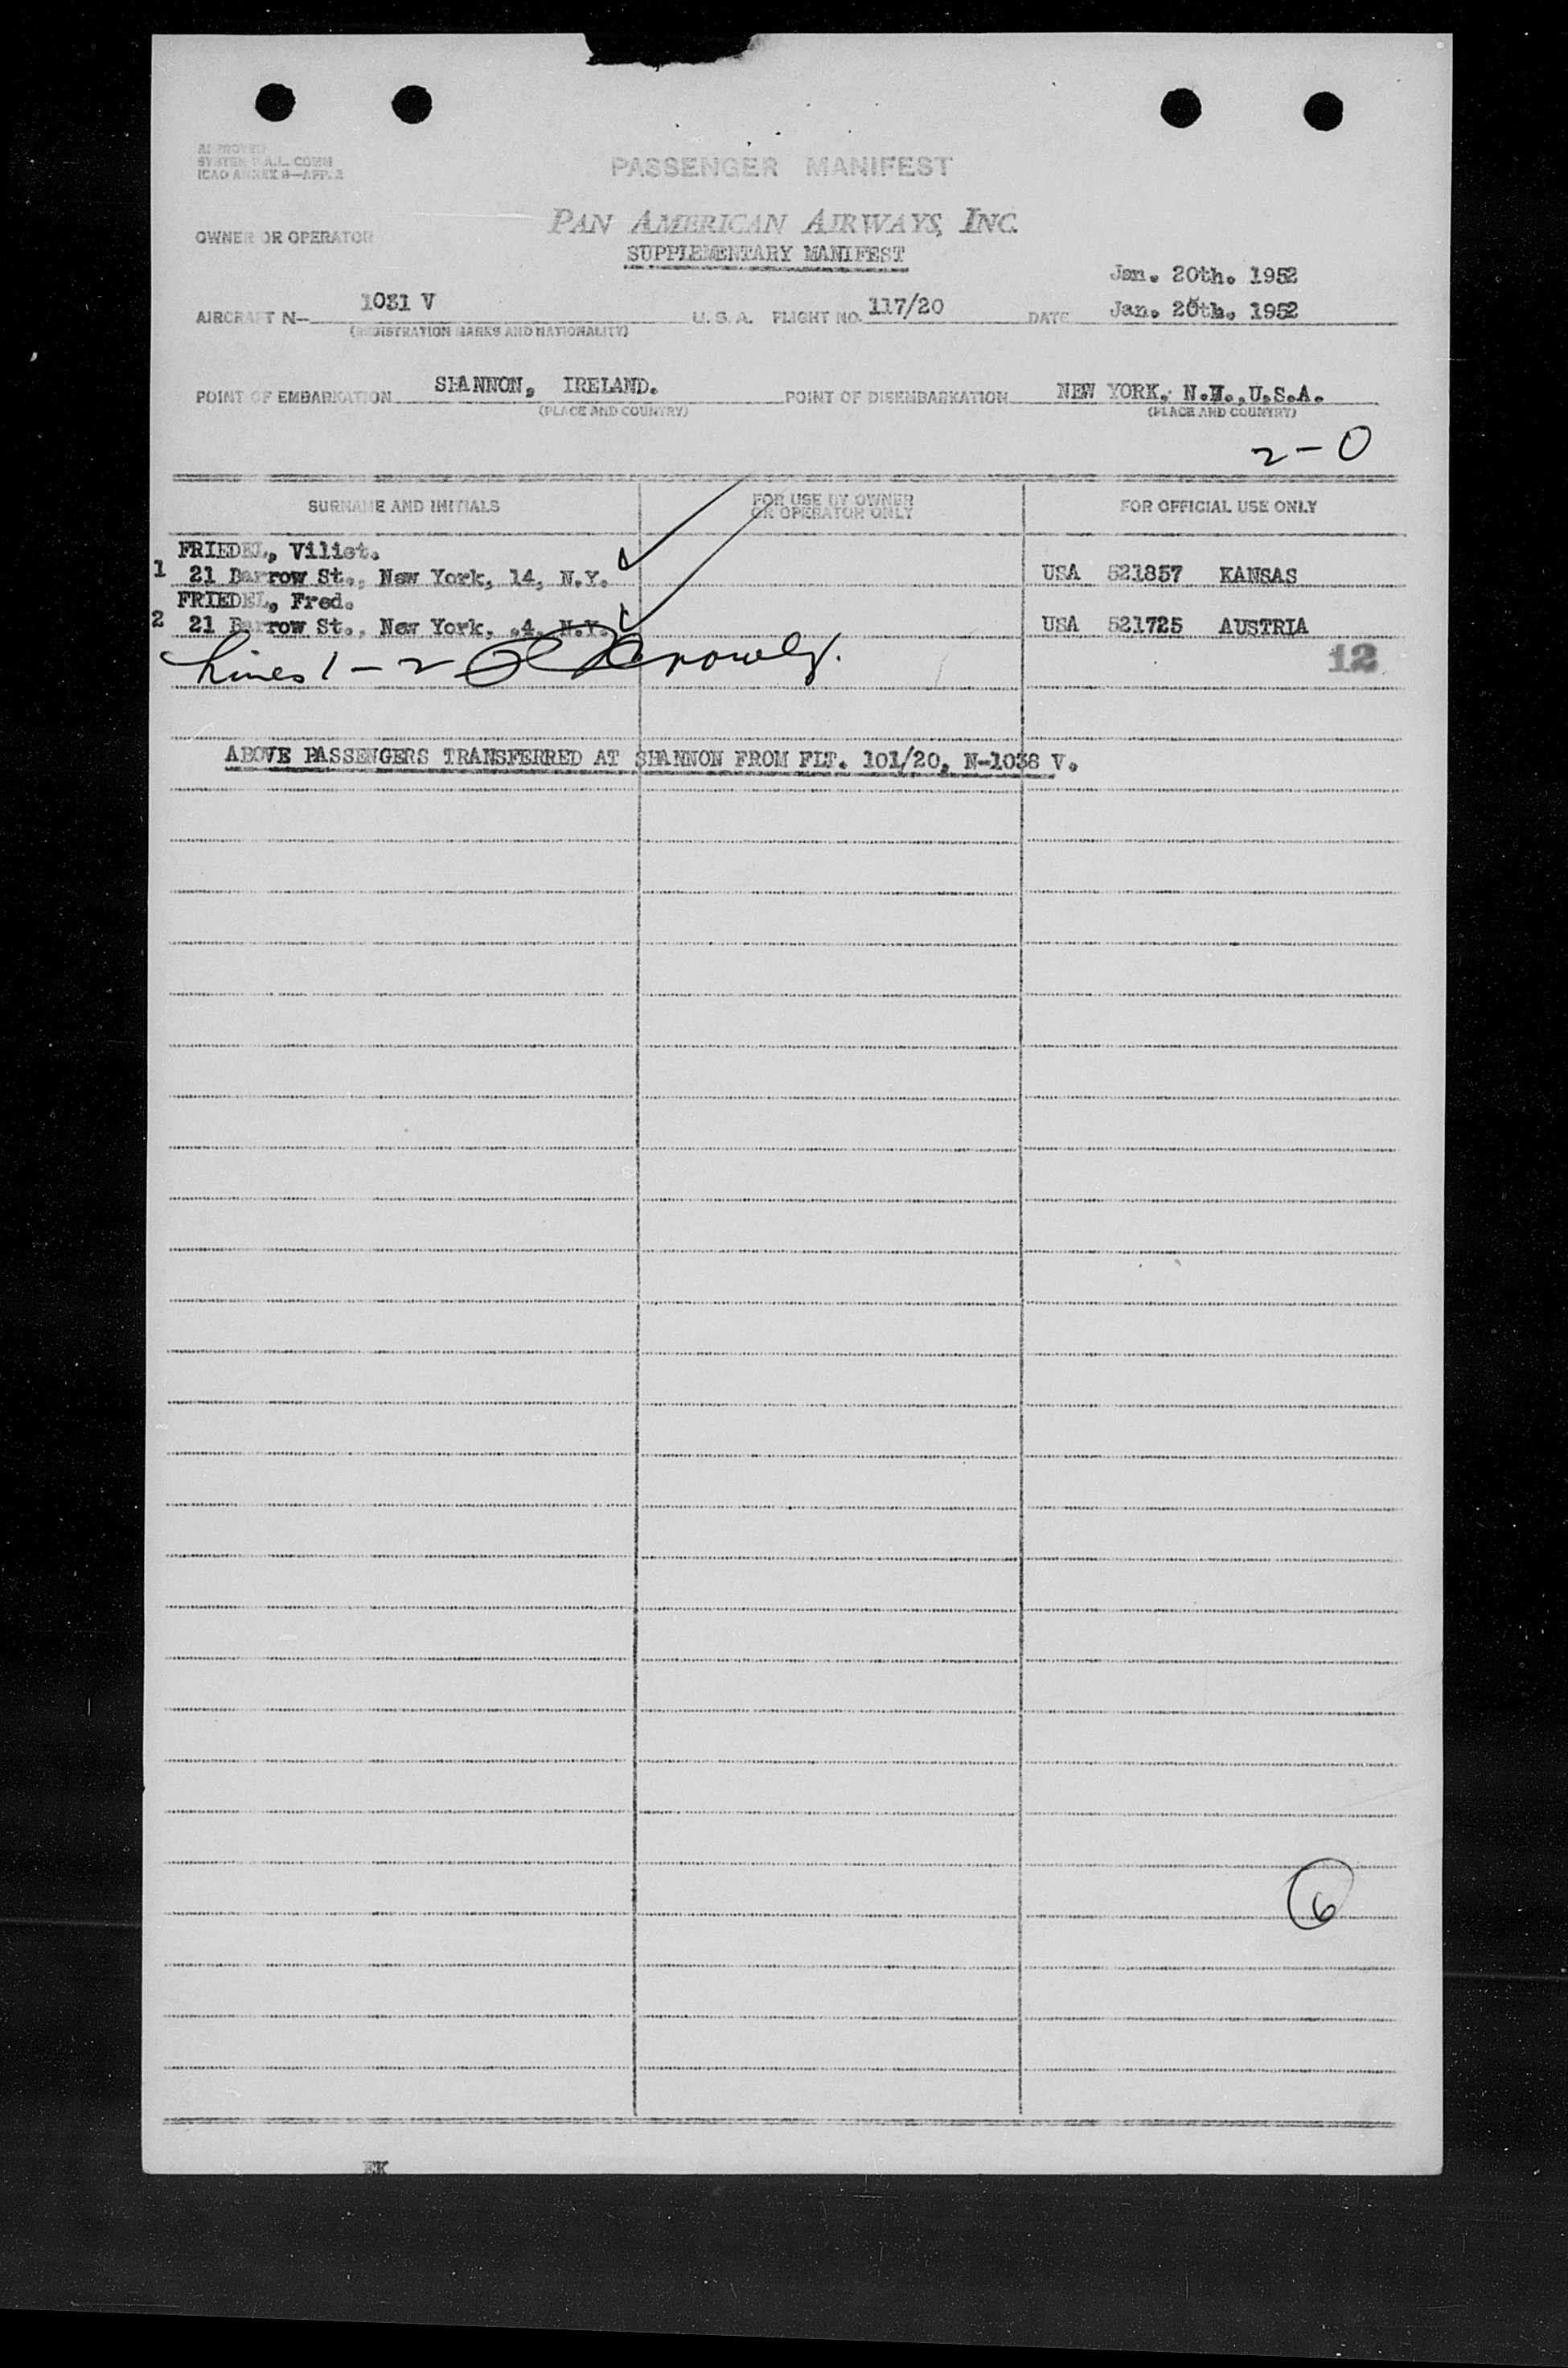 APPROVED
SYSTEM P.A.L. COMM
ICAO ANNEX 9—APP. 2
PASSENGER MANIFEST
PAN AMERICAN AIRWAYS, INC.
SUPPLEMENTARY MANIFEST
OWNER OR OPERATOR
Jan. 20th. 1952
AIRCRAFT N— 1031 V U. S. A. FLIGHT NO. 117/20 DATE Jan. 20th. 1952
(REGISTRATION MARKS AND NATIONALITY)
POINT OF EMBARKATION SHANNON, IRELAND. POINT OF DISEMBARKATION NEW YORK, N.Y.,U.S.A.
(PLACE AND COUNTRY) (PLACE AND COUNTRY)
2-0
SURNAME AND INITIALS FOR USE BY OWNER OR OPERATOR ONLY FOR OFFICIAL USE ONLY
FRIEDEL, Viliet.
1 21 Barrow St., New York, 14, N.Y. USA 521857 KANSAS
FRIEDEL, Fred.
2 21 Barrow St., New York, .4, N.Y. USA 521725 AUSTRIA
Lines 1-2
12
ABOVE PASSENGERS TRANSFERRED AT SHANNON FROM FLT. 101/20, N-1038 V.
6
EK